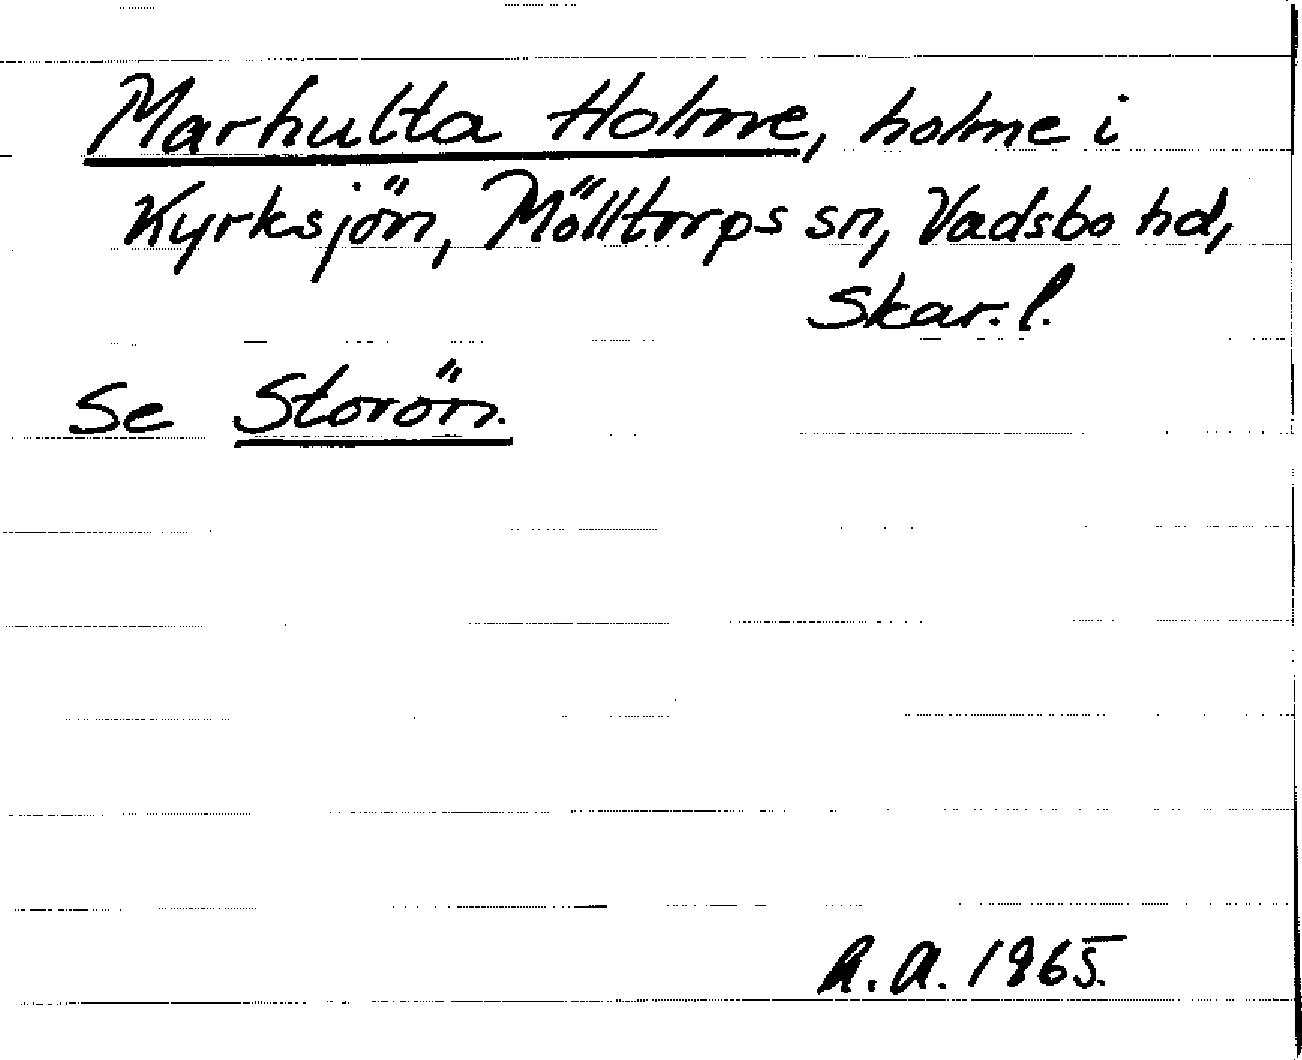 Marhulta Holme, holme i
Kyrksjön, Mölltorps sn, Vadsbo hd,
Skar. l.
Se Storön.
A.A. 1965.